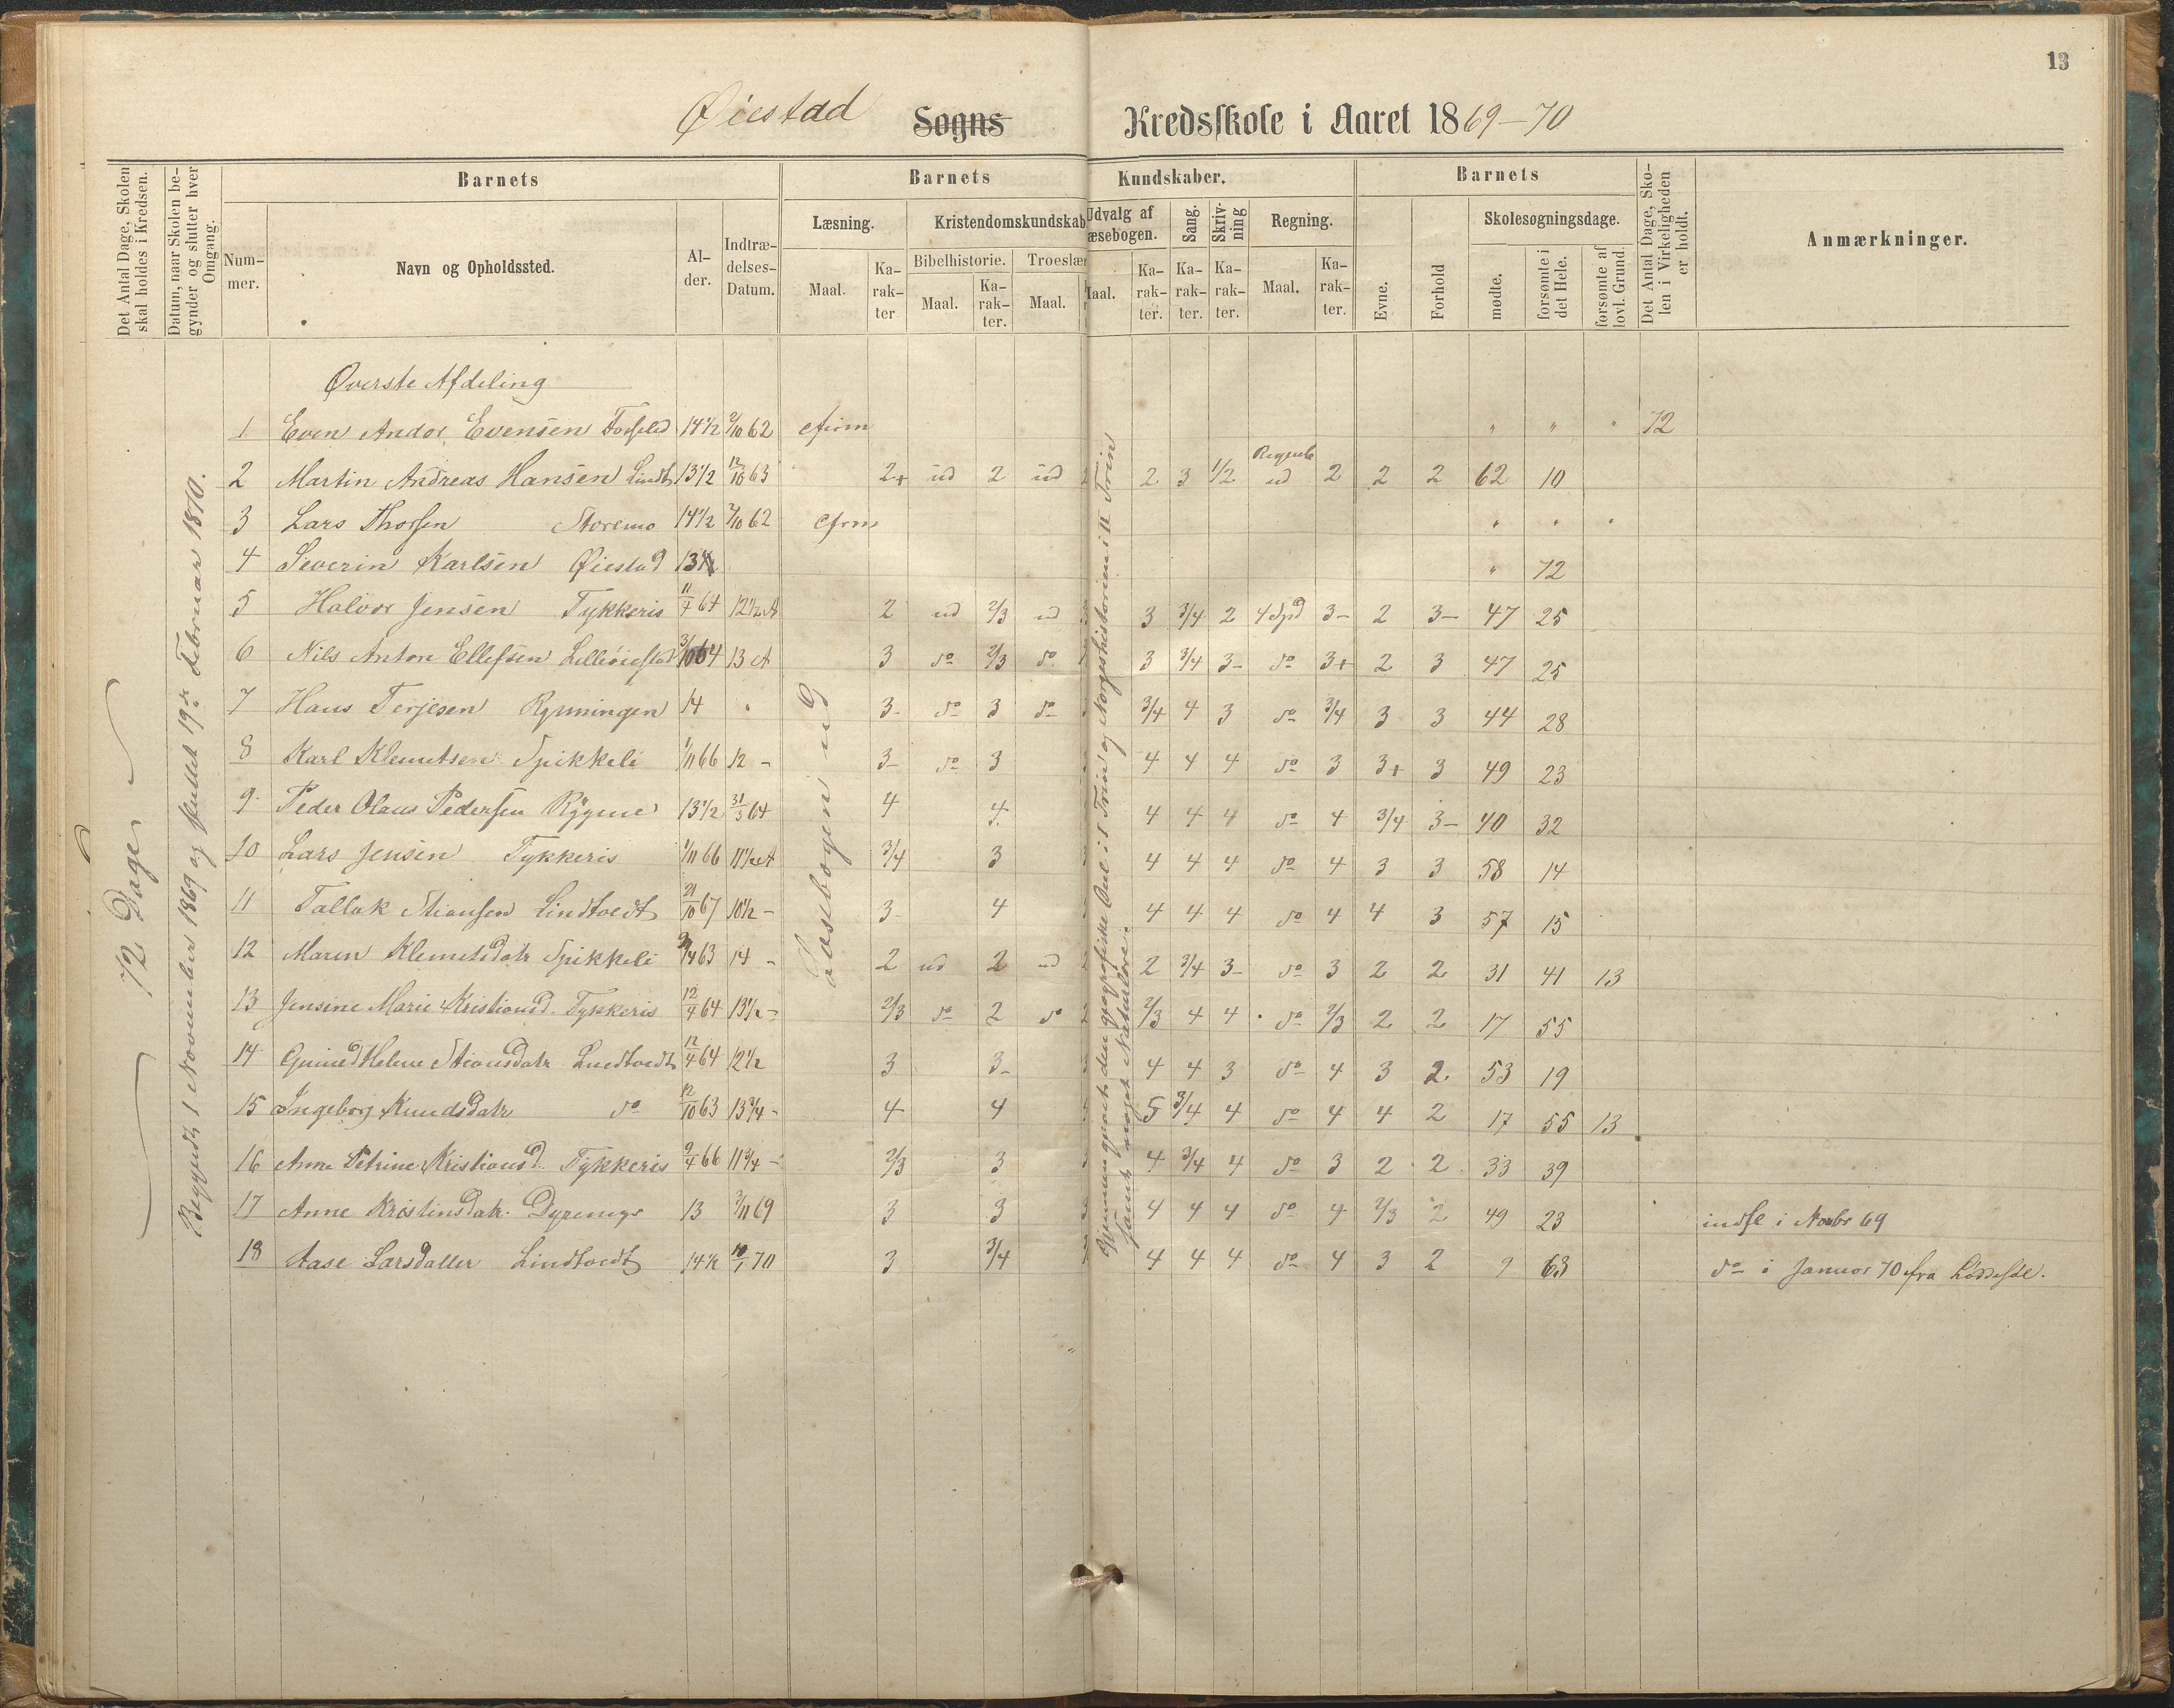 13
Øiestad Sogns Kredsskole i Aaret 1869-70
Det Antal Dage, Skolen skal holdes i Kredsen.
Datum, naar Skolen begynder og slutter hver Omgang.
Barnets
Nummer.
Navn og Opholdssted.
Alder.
Indtrædelses-Datum.
Barnets Kundskaber.
Læsning.
Maal.
Karakter
Kristendomskundskab
Bibelhistorie.
Maal.
Karakter.
Troeslær
Maal.
Udvalg af Læsebogen.
Maal.
Karakter.
Sang.
Karakter.
Skrivning
Karakter.
Regning.
Maal.
Karakter.
Barnets
Evne.
Forhold
Skolesøgningsdage.
mødte.
forsømte i det Hele.
forsømte af lovl. Grund.
Det Antal Dage, Skolen i Virkeligheden er holdt.
Anmærkninger.
72 Dage
Begyndt 1 November 1869 og sluttet 19de Februar 1870.
Læsebogen ud
Øverste Afdeling
1 Even Andor Evensen 14½ 2/10 62 " " " 72
2 Martin Andreas Hansen Lindt 13½ 12/10 63 2+ ud 2 ud 2 3 1/2 ud 2 2 2 62 10
3 Lars Thorsen Storemo 14½ 2/10 62 " " "
4 Severin Karlsen Øiestad 13½ " 72
5 Halvor Jensen Tykkeris 11/4 64 12½ A 2 ud 2/3 ud 3 3/4 2 4 Spd 3- 2 3- 47 25
6 Nils Anton Ellefsen Lilleøiestad 3/10 64 13 A 3 do 2/3 do 3 3/4 3- do 3+ 2 3 47 25
7 Hans Terjesen Rynningen 14 " 3- do 3 do 3/4 4 3 do 3/4 3 3 44 28
8 Karl Klemetsen Spikkeli 1/11 66 12 - 3- do 3 4 4 4 do 3 3+ 3 49 23
9 Peder Olaus Pedersen Rygene 13½ 31/3 64 4 4 4 4 4 do 4 3/4 3- 40 32
10 Lars Jensen Tykkeris 1/11 66 11½ A 3/4 3 4 4 4 do 4 3 3 58 14
11 Tallak Stiansen Lindtvedt 21/10 67 10½ - 3- 4 4 4 4 do 4 4 3 57 15
12 Maren Klemetsdatr Spikkeli 63 14 - 2 ud 2 ud 2 3/4 3- do 3 2 2 31 41 13
13 Jensine Marie Kristiansd. Tykkeris 12/4 64 13½ - 2/3 do 2 do 2/3 4 4 do 2/3 2 2 17 55
14 Helene Stiansdatr Lindtvedt 12/4 64 12½ 3 3- 4 4 3 do 4 3 2 53 19
15 Ingeborg Knudsdatr do 12/10 63 13¾ - 4 4 5 3/4 4 do 4 4 2 17 55 13
16 Anne Petrine Kristiansd. Tykkeris 9/4 66 11¾ - 2/3 3 4 3/4 4 do 3 2 2 33 39
17 Anne Kristinsdatr. 13 3/11 69 3 3 4 4 4 do 4 2/3 2 49 23 indfl i Novbr 69
18 Aase Larsdatter Lindtvedt 14½ 10/1 70 3 3/4 4 4 4 do 4 3 2 9 63 do i Januar 70 fra Løddesøl.